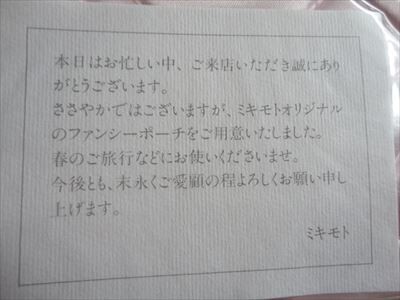 本日はお忙しい中、ご来店いただき誠にあり
がとうございます。
ささやかではございますが、ミキモトオリジナル
のファンシーポーチをご用意いたしました。
春のご旅行などにお使いくださいませ。
今後とも、末永くご愛顧の程よろしくお願い申し
上げます。
ミキモト